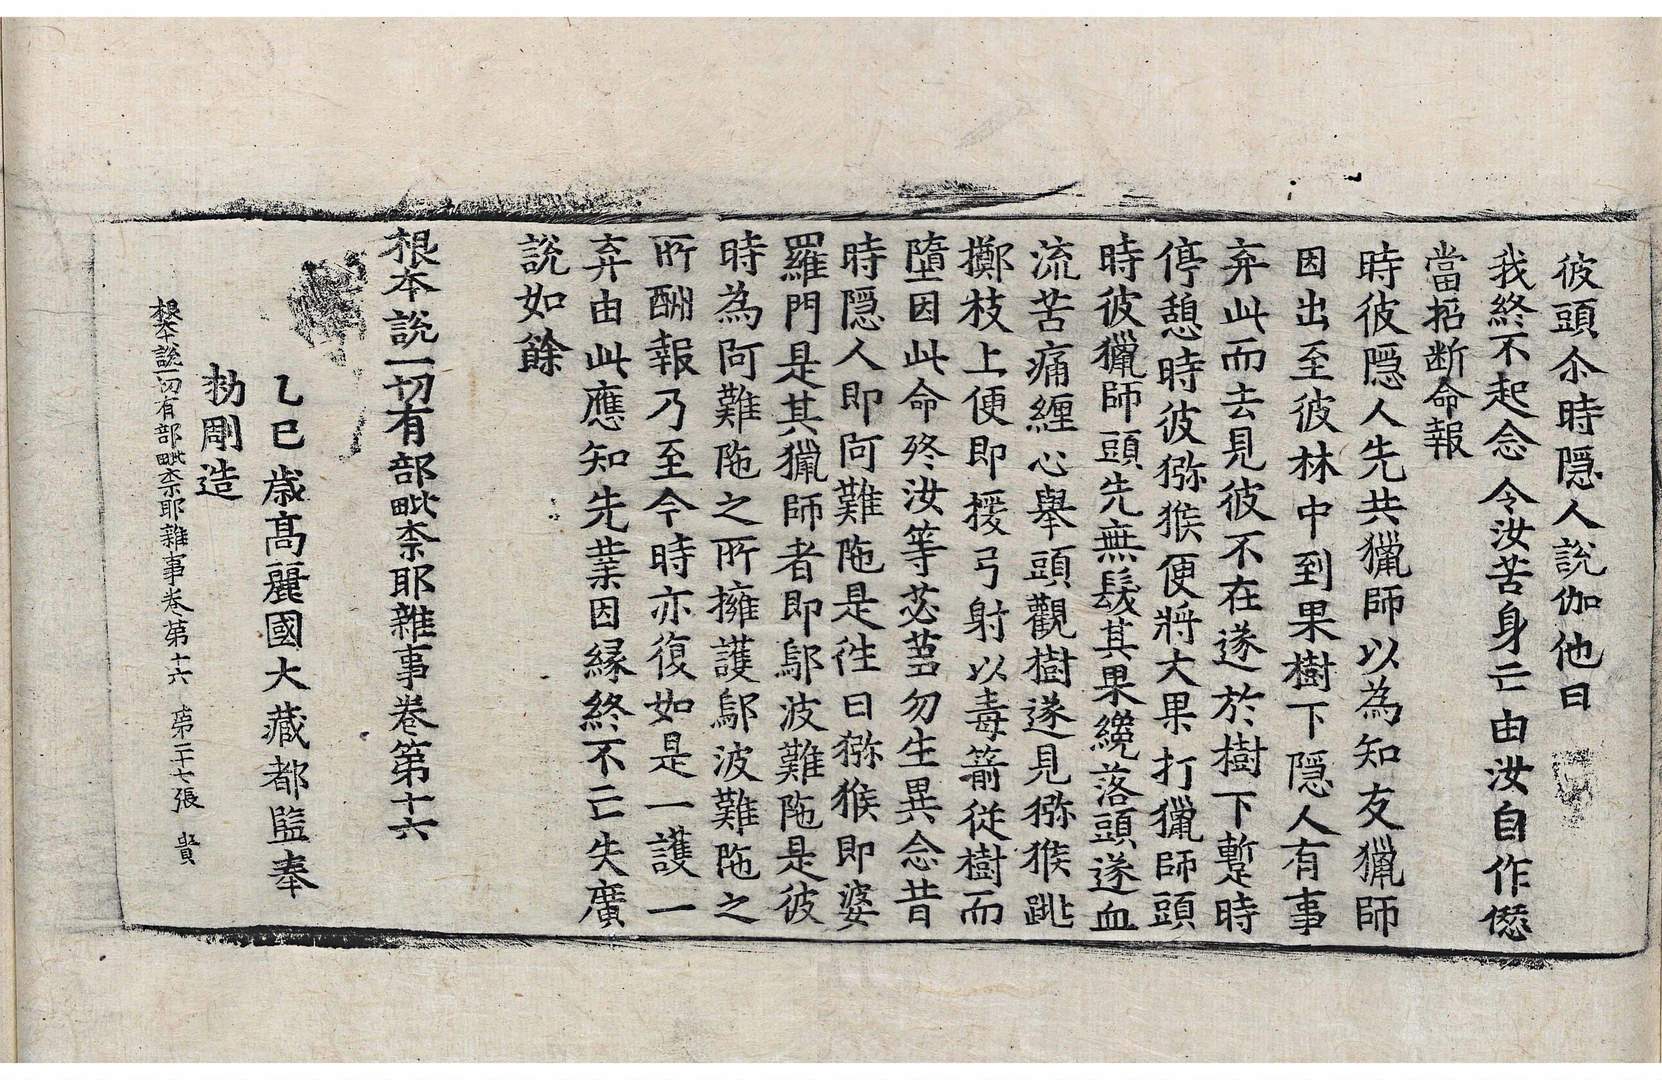 彼頭尒時隠人說伽他曰
我終不起念 令汝苦身亡 由汝自作愆
當招断命報
時彼隠人先共獵師以為知友獵師
因出至彼林中到果樹下隠人有事
弃此而去見彼不在遂於樹下蹔時
停憩時彼獼猴便將大果打獵師頭
時彼獵師頭先無髮其果纔落頭遂血
流苦痛纏心舉頭觀樹遂見獼猴跳
擲枝上便即援弓射以毒箭從樹而
墮因此命終汝等苾蒭勿生異念昔
時隠人即阿難陁是徃日獼猴即婆
羅門是其獵師者即鄔波難陁是彼
時為阿難陁之所擁護鄔波難陁之
所酬報乃至今時亦復如是一護一
弃由此應知先業因縁終不亡失廣
說如餘
根本說一切有部毗柰耶雜事卷第十六
乙巳歳高麗國大藏都監奉
勑彫造
根本說一切有部毗柰耶雜事卷第十六 第二十七張 賛